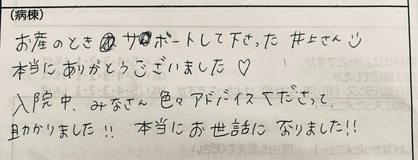 (病棟)
お産のとき サポートして下さった 井上さん☺
本当に ありがとうございました♡
入院中、みなさん 色々アドバイスくださって、
助かりました!! 本当に お世話に なりました!!